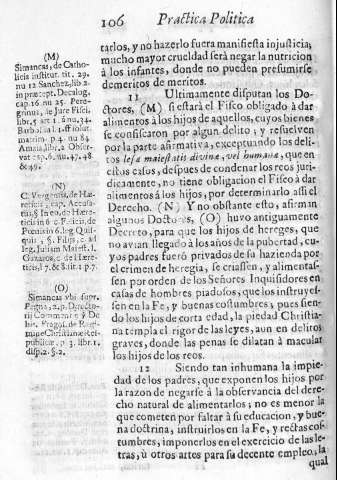 106 Practica Politica
tarlos, y no hazerlo fuera manifiesta injusticia;
mucho mayor crueldad será negar la nutricion
à los infantes, donde no pueden presumirse
demeritos de meritos.
11 Ultimamente disputan los Do-
ctores, (M) si estarà el Fisco obligado à dar
alimentos à los hijos de aquellos, cuyos bienes
se confiscaron por algun delito; y resuelven
por la parte afirmativa, exceptuando los deli-
tos lesæ maiestatis divinæ, vel humanæ, que en
estos casos, despues de condenar los reos juri-
dicamente, no tiene obligacion el Fisco à dar
alimentos à los hijos, por determinarlo assi el
Derecho. (N) Y no obstante esto, afirman
algunos Doctores, (O) huvo antiguamente
Decreto, para que los hijos de hereges, que
no avian llegado à los años de la pubertad, cu-
yos padres fuerõ privados de su hazienda por
el crimen de heregia, se criassen, y alimentas-
sen por orden de los Señores Inquisidores en
casas de hombres piadosos, que los instruyes-
sen en la Fe, y buenas costumbres; pues sien-
do los hijos de corta edad, la piedad Christia-
na templa el rigor de las leyes, aun en delitos
graves, donde las penas se dilatan à macular
los hijos de los reos.
12 Siendo tan inhumana la impie-
dad de los padres, que exponen los hijos por
la razon de negarse à la observancia del dere-
cho natural de alimentarlos; no es menor la
que cometen por faltar à su educacion, y bue-
na doctrina, instruirlos en la Fe, y rectas cos-
tumbres, imponerlos en el exercicio de las le-
tras, ù otros artes para su decente empleo, la
qual
(M)
Simancas, de Catho-
licis institut. tit. 29.
nu 12 Sanchez, lib 2.
in præcept. Decalog.
cap. 16. nu 25. Pere-
grinus, de Jure Fisci.
lib. 5 art 1. nu. 34.
Barbosa
matrim. p. 4. nu 84
Amaia, lib. 2. Obser-
vat cap. 6. nu. 47. 48
& 49.
(N)
C. Vergentis, de Hæ-
reticis, cap. Accusa-
tus, § In eo, de Hære-
ticis in 6 c Felicis, de
Pœnis in 6. leg. Quis-
quis, §. Filij, C. ad
leg. Juliam Maiest. l.
Gazaros, C. de Hære-
ticis, l 7. & 8. tit 2 p.7.
(O)
Simancas vbi supr.
Pegna, 2. p. Directo-
rij Comment. Y De
his. Fragos. de Regi-
mine Christianæ Rei-
publicæ, p 3. libr. 1.
disp. 2. §. 2.